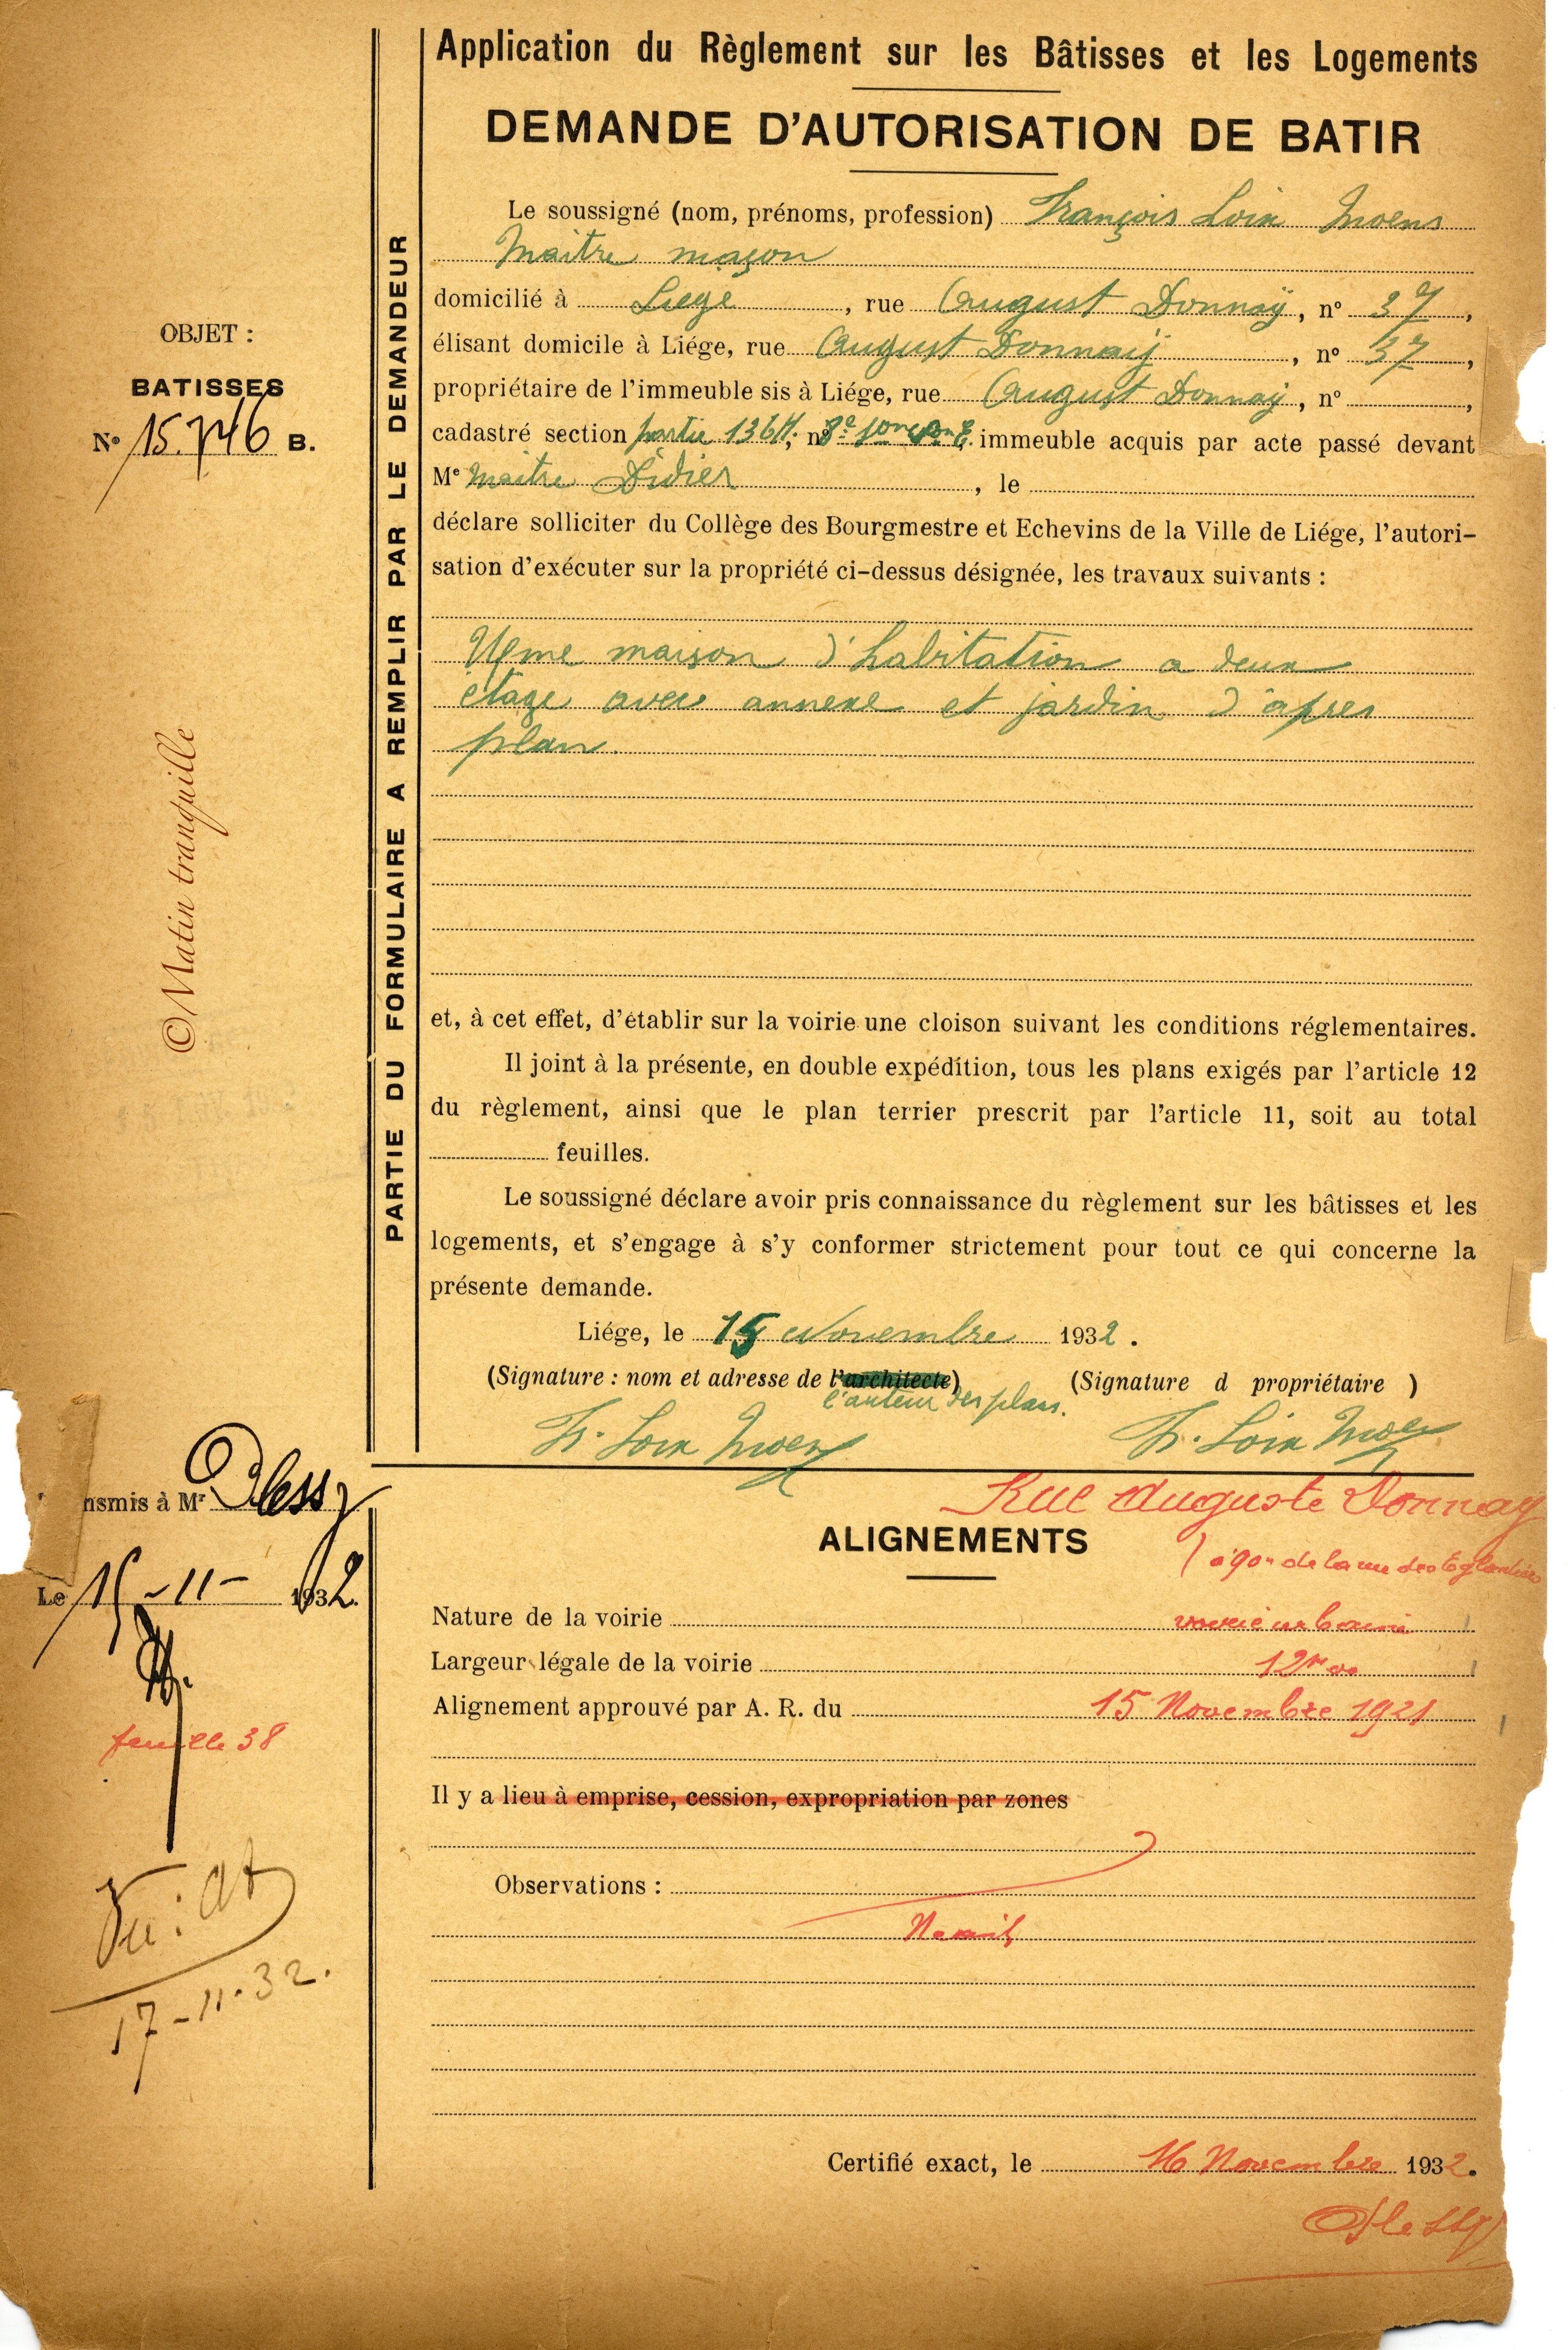 Application du Règlement sur les Bâtisses et les Logements
DEMANDE D'AUTORISATION DE BATIR
PARTIE DU FORMULAIRE A REMPLIR PAR LE DEMANDEUR
OBJET :
BATISSES
No 15.746 B.
©Matin tranquille
Le soussigné (nom, prénoms, profession) François Loix Moens
Maitre maçon
domicilié à Liege, rue August Donnaÿ, no 37,
élisant domicile à Liége, rue August Donnaij, no 37,
propriétaire de l'immeuble sis à Liége, rue August Donnaij, no ,
cadastré section partie 136 immeuble acquis par acte passé devant
Me Maitre Didier, le
déclare solliciter du Collège des Bourgmestre et Echevins de la Ville de Liége, l'autori-
sation d'exécuter sur la propriété ci-dessus désignée, les travaux suivants :
maison d'habitation a deux
étage avec annexe et jardin d'apres
plan.
et, à cet effet, d'établir sur la voirie une cloison suivant les conditions réglementaires.
Il joint à la présente, en double expédition, tous les plans exigés par l'article 12
du règlement, ainsi que le plan terrier prescrit par l'article 11, soit au total
feuilles.
Le soussigné déclare avoir pris connaissance du règlement sur les bâtisses et les
logements, et s'engage à s'y conformer strictement pour tout ce qui concerne la
présente demande.
Liége, le 15 Novembre 1932.
(Signature : nom et adresse de l'architecte) (Signature d propriétaire )
l'auteur des plans.
Fr. Loix Moens Fr. Loix Moens
nsmis à Mr Dessy
Le 15-11-1932.
feuille 38
Vu :
17-11-32.
Rue Auguste Donnay
ALIGNEMENTS
de la rue des Eglantiers
Nature de la voirie voirie urbaine
Largeur légale de la voirie 12m00
Alignement approuvé par A. R. du 15 Novembre 1921
Il y a lieu à emprise, cession, expropriation par zones
Observations :
Certifié exact, le 16 Novembre 1932.